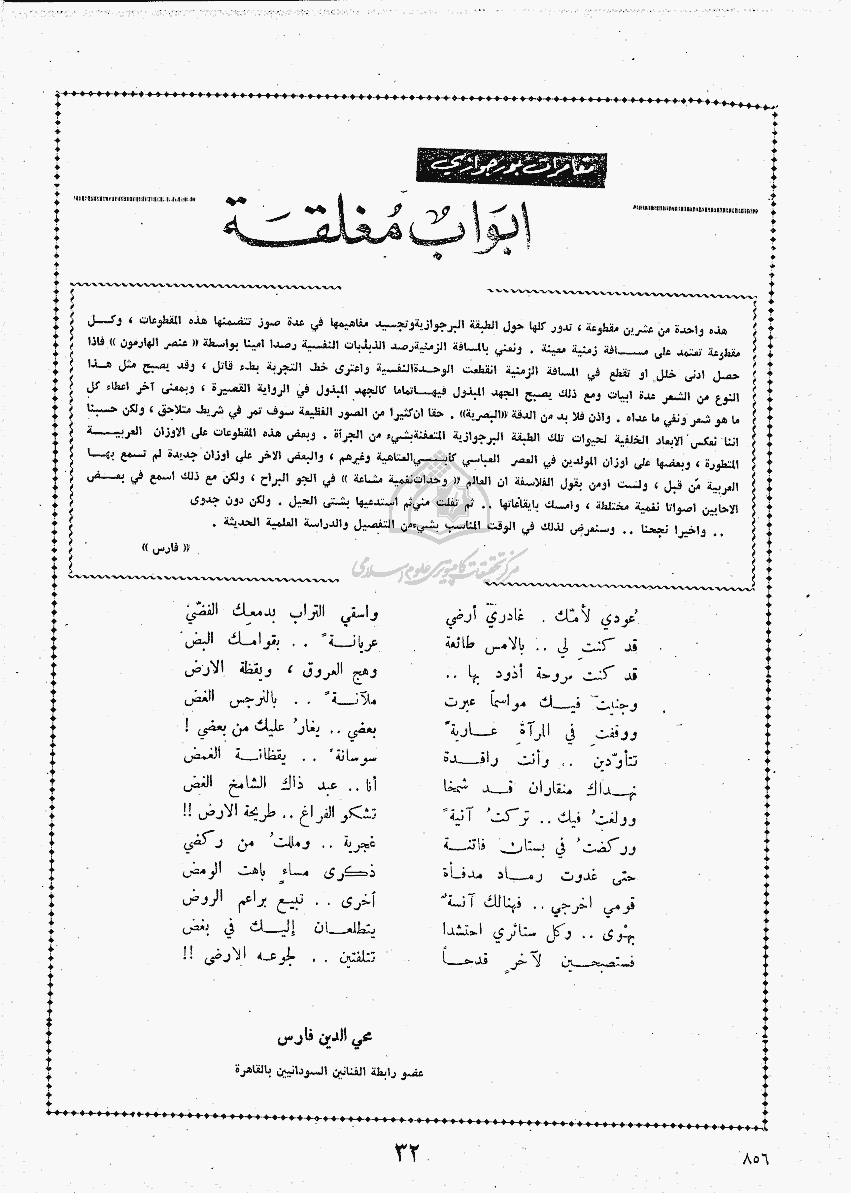 مغامرات بورجوازي
ابواب مغلقة
هذه واحدة من عشرين مقطوعة ، تدور كلها حول الطبقة البرجوازية وتجسيد مفاهيمها في عدة صور تتضمنها هذه المقطوعات ، وكل
مقطوعة تعتمد على مسافة زمنية معينة . ونعني بالمسافة الزمنية رصد الذبذبات النفسية رصدا امينا بواسطة « عنصر الهارمون » فاذا
حصل ادنى خلل او تقطع في المسافة الزمنية انقطعت الوحدة النفسية واعترى خط التجربة بطء قاتل ، وقد يصبح مثل هذا
النوع من الشعر عدة ابيات ومع ذلك يصبح الجهد المبذول فيها تماما كالجهد المبذول في الرواية القصيرة ، وبمعنى آخر اعطاء كل
ما هو شعر ونفي ما عداه . واذن فلا بد من الدقة «البصرية» . حقا ان كثيرا من الصور الفظيعة سوف تمر في شريط متلاحق ، ولكن حسبنا
اننا نعكس الابعاد الخلفية لحيوات تلك الطبقة البرجوازية المتعفنة بشيء من الجرأة . وبعض هذه المقطوعات على الاوزان العربية
المتطورة ، وبعضها على اوزان المولدين في العصر العباسي كأبي العتاهية وغيرهم ، والبعض الاخر على اوزان جديدة لم تسمع بها
العربية من قبل ، ولست اومن بقول الفلاسفة ان العالم « وحدات نغمية مشاعة » في الجو البراح ، ولكن مع ذلك اسمع في بعض
الاحايين اصواتا نغمية مختلطة ، وامسك بايقاعاتها .. ثم تفلت مني ثم استدعيها بشتى الحيل . ولكن دون جدوى
.. واخيرا نجحنا .. وسنعرض لذلك في الوقت المناسب بشيء من التفصيل والدراسة العلمية الحديثة .
« فارس »
عودي لأمّك . غادري أرضي واسقي التراب بدمعك الفضّي
قد كنتِ لي .. بالامس طائعة عريانة .. بقوامك البض
قد كنت مروحة أذود بها .. وهج العروق ، ويقظة الارض
وجنيت فيك مواسما عبرت ملآنة .. بالنرجس الغض
ووقفتِ في المرآةِ عارية بعضي .. يغار عليك من بعضي !
تتأودين .. وأنت راقدة سوسانة .. يقظانة الغمض
نهداك منقاران قد شمخا أنا .. عبد ذاك الشامخ الغض
وولغتُ فيك .. تركتُ آنيةً تشكو الفراغ .. طريحة الارض !!
وركضتُ في بستان فاتنة غجرية .. ومللتُ من ركضي
حتى غدوت رماد مدفأة ذكرى مساءٍ باهت الومض
قومي اخرجي .. فهنالك آنسة أخرى .. تبيع براعم الروض
بهوى .. وكل ستائري احتشدا يتطلعان إليك في بغض
فستصبحين لآخرٍ قدحاً تتلفتين .. لجوعه الارضي !!
محي الدين فارس
عضو رابطة الفنانين السودانيين بالقاهرة
٣٢
٨٥٦
مركز تحقيقات كامپيوترى علوم اسلامى